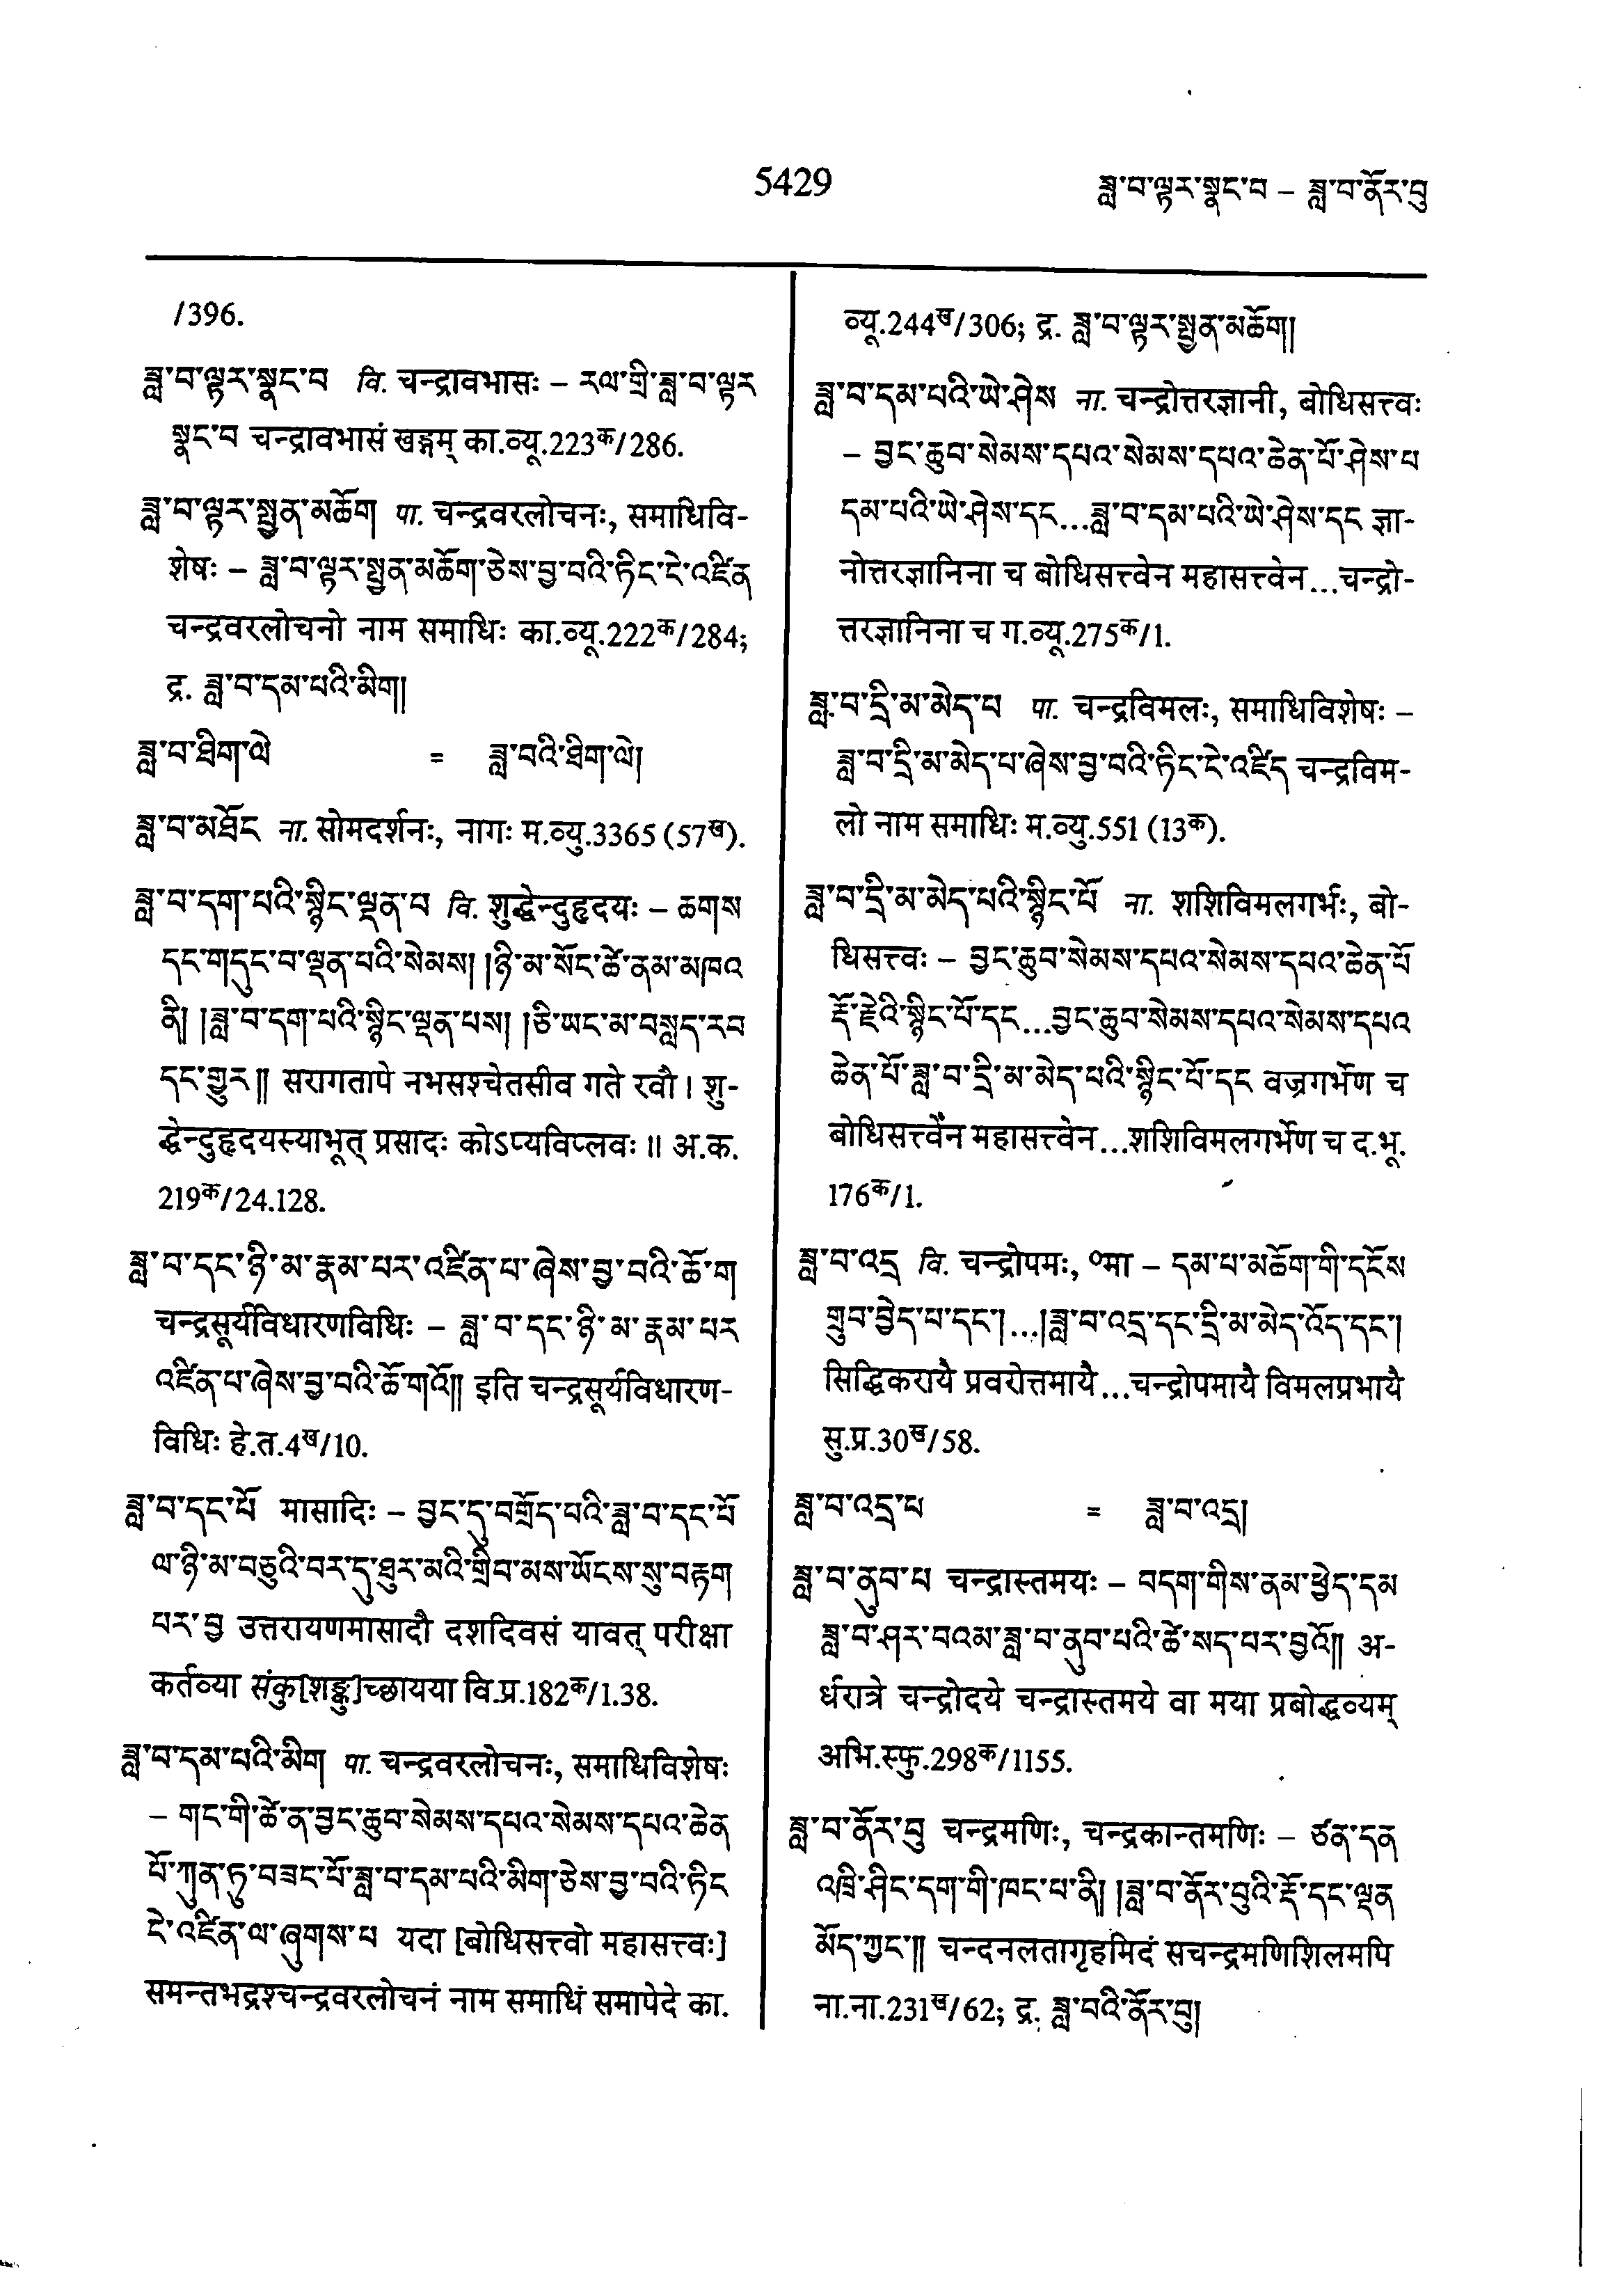 5429
ཟླ་བ་ལྟར་སྣང་བ – ཟླ་བ་ནོར་བུ
/396.
ཟླ་བ་ལྟར་སྣང་བ वि. चन्द्रावभासः – རལ་གྲི་ཟླ་བ་ལྟར
སྣང་བ चन्द्रावभासं खड्गम् का.व्यू.223क/286.
ཟླ་བ་ལྟར་སྤྱན་མཆོག पा. चन्द्रवरलोचनः, समाधिवि-
शेषः – ཟླ་བ་ལྟར་སྤྱན་མཆོག་ཅེས་བྱ་བའི་ཏིང་ངེ་འཛིན
चन्द्रवरलोचनो नाम समाधिः का.व्यू.222क/284;
द्र. ཟླ་བ་དམ་པའི་མིག།
ཟླ་བ་ཐིག་ལེ = ཟླ་བའི་ཐིག་ལེ།
ཟླ་བ་མཐོང ना. सोमदर्शनः, नागः म.व्यु.3365 (57ख).
ཟླ་བ་དག་པའི་སྙིང་ལྡན་པ वि. शुद्धेन्दुहृदयः – ཆགས
དང་གདུང་བ་ལྡན་པའི་སེམས། །ཉི་མ་སོང་ཚེ་ནམ་མཁའ
ནི། །ཟླ་བ་དག་པའི་སྙིང་ལྡན་པས། །ཅི་ཡང་མ་བསླད་རབ
དང་གྱུར༎ सरागतापे नभसश्चेतसीव गते रवौ। शु-
द्धेन्दुहृदयस्याभूत् प्रसादः कोऽप्यविप्लवः॥ अ.क.
219क/24.128.
ཟླ་བ་དང་ཉི་མ་རྣམ་པར་འཛིན་པ་ཞེས་བྱ་བའི་ཆོ་ག
चन्द्रसूर्यविधारणविधिः – ཟླ་བ་དང་ཉི་མ་རྣམ་པར
འཛིན་པ་ཞེས་བྱ་བའི་ཆོ་གའོ༎ इति चन्द्रसूर्यविधारण-
विधिः हे.त.4ख/10.
ཟླ་བ་དང་པོ मासादिः – བྱང་དུ་བགྲོད་པའི་ཟླ་བ་དང་པོ
ལ་ཉི་མ་བཅུའི་བར་དུ་ཐུར་མའི་གྲིབ་མས་ཡོངས་སུ་བརྟག
པར་བྱ उत्तरायणमासादौ दशदिवसं यावत् परीक्षा
कर्तव्या संकु[शङ्कु]च्छायया वि.प्र.182क/1.38.
ཟླ་བ་དམ་པའི་མིག पा. चन्द्रवरलोचनः, समाधिविशेषः
– གང་གི་ཚེ་ན་བྱང་ཆུབ་སེམས་དཔའ་སེམས་དཔའ་ཆེན
པོ་ཀུན་ཏུ་བཟང་པོ་ཟླ་བ་དམ་པའི་མིག་ཅེས་བྱ་བའི་ཏིང
ངེ་འཛིན་ལ་ཞུགས་པ यदा [बोधिसत्त्वो महासत्त्वः]
समन्तभद्रश्चन्द्रवरलोचनं नाम समाधिं समापेदे का.
व्यू.244ख/306; द्र. ཟླ་བ་ལྟར་སྤྱན་མཆོག།
ཟླ་བ་དམ་པའི་ཡེ་ཤེས ना. चन्द्रोत्तरज्ञानी, बोधिसत्त्वः
– བྱང་ཆུབ་སེམས་དཔའ་སེམས་དཔའ་ཆེན་པོ་ཤེས་པ
དམ་པའི་ཡེ་ཤེས་དང...ཟླ་བ་དམ་པའི་ཡེ་ཤེས་དང ज्ञा-
नोत्तरज्ञानिना च बोधिसत्त्वेन महासत्त्वेन...चन्द्रो-
त्तरज्ञानिना च ग.व्यू.275क/1.
ཟླ་བ་དྲི་མ་མེད་པ पा. चन्द्रविमलः, समाधिविशेषः –
ཟླ་བ་དྲི་མ་མེད་པ་ཞེས་བྱ་བའི་ཏིང་ངེ་འཛིད चन्द्रविम-
लो नाम समाधिः म.व्यु.551 (13क).
ཟླ་བ་དྲི་མ་མེད་པའི་སྙིང་པོ ना. शशिविमलगर्भः, बो-
धिसत्त्वः – བྱང་ཆུབ་སེམས་དཔའ་སེམས་དཔའ་ཆེན་པོ
རྡོ་རྗེའི་སྙིང་པོ་དང...བྱང་ཆུབ་སེམས་དཔའ་སེམས་དཔའ
ཆེན་པོ་ཟླ་བ་དྲི་མ་མེད་པའི་སྙིང་པོ་དང वज्रगर्भेण च
बोधिसत्त्वेन महासत्त्वेन...शशिविमलगर्भेण च द.भू.
176क/1.
ཟླ་བ་འདྲ वि. चन्द्रोपमः, ०मा – དམ་པ་མཆོག་གི་དངོས
གྲུབ་བྱེད་པ་དང་།...།ཟླ་བ་འདྲ་དང་དྲི་མ་མེད་འོད་དང་།
सिद्धिकरायै प्रवरोत्तमायै...चन्द्रोपमायै विमलप्रभायै
सु.प्र.30ख/58.
ཟླ་བ་འདྲ་པ = ཟླ་བ་འདྲ།
ཟླ་བ་ནུབ་པ चन्द्रास्तमयः – བདག་གིས་ནམ་ཕྱེད་དམ
ཟླ་བ་ཤར་བའམ་ཟླ་བ་ནུབ་པའི་ཚེ་སད་པར་བྱའོ༎ अ-
र्धरात्रे चन्द्रोदये चन्द्रास्तमये वा मया प्रबोद्धव्यम्
अभि.स्फु.298क/1155.
ཟླ་བ་ནོར་བུ चन्द्रमणिः, चन्द्रकान्तमणिः – ཙན་དན
འཁྲི་ཤིང་དག་གི་ཁང་པ་ནི། །ཟླ་བ་ནོར་བུའི་རྡོ་དང་ལྡན
མོད་ཀྱང་༎ चन्दनलतागृहमिदं सचन्द्रमणिशिलमपि
ना.ना.231ख/62; द्र. ཟླ་བའི་ནོར་བུ།